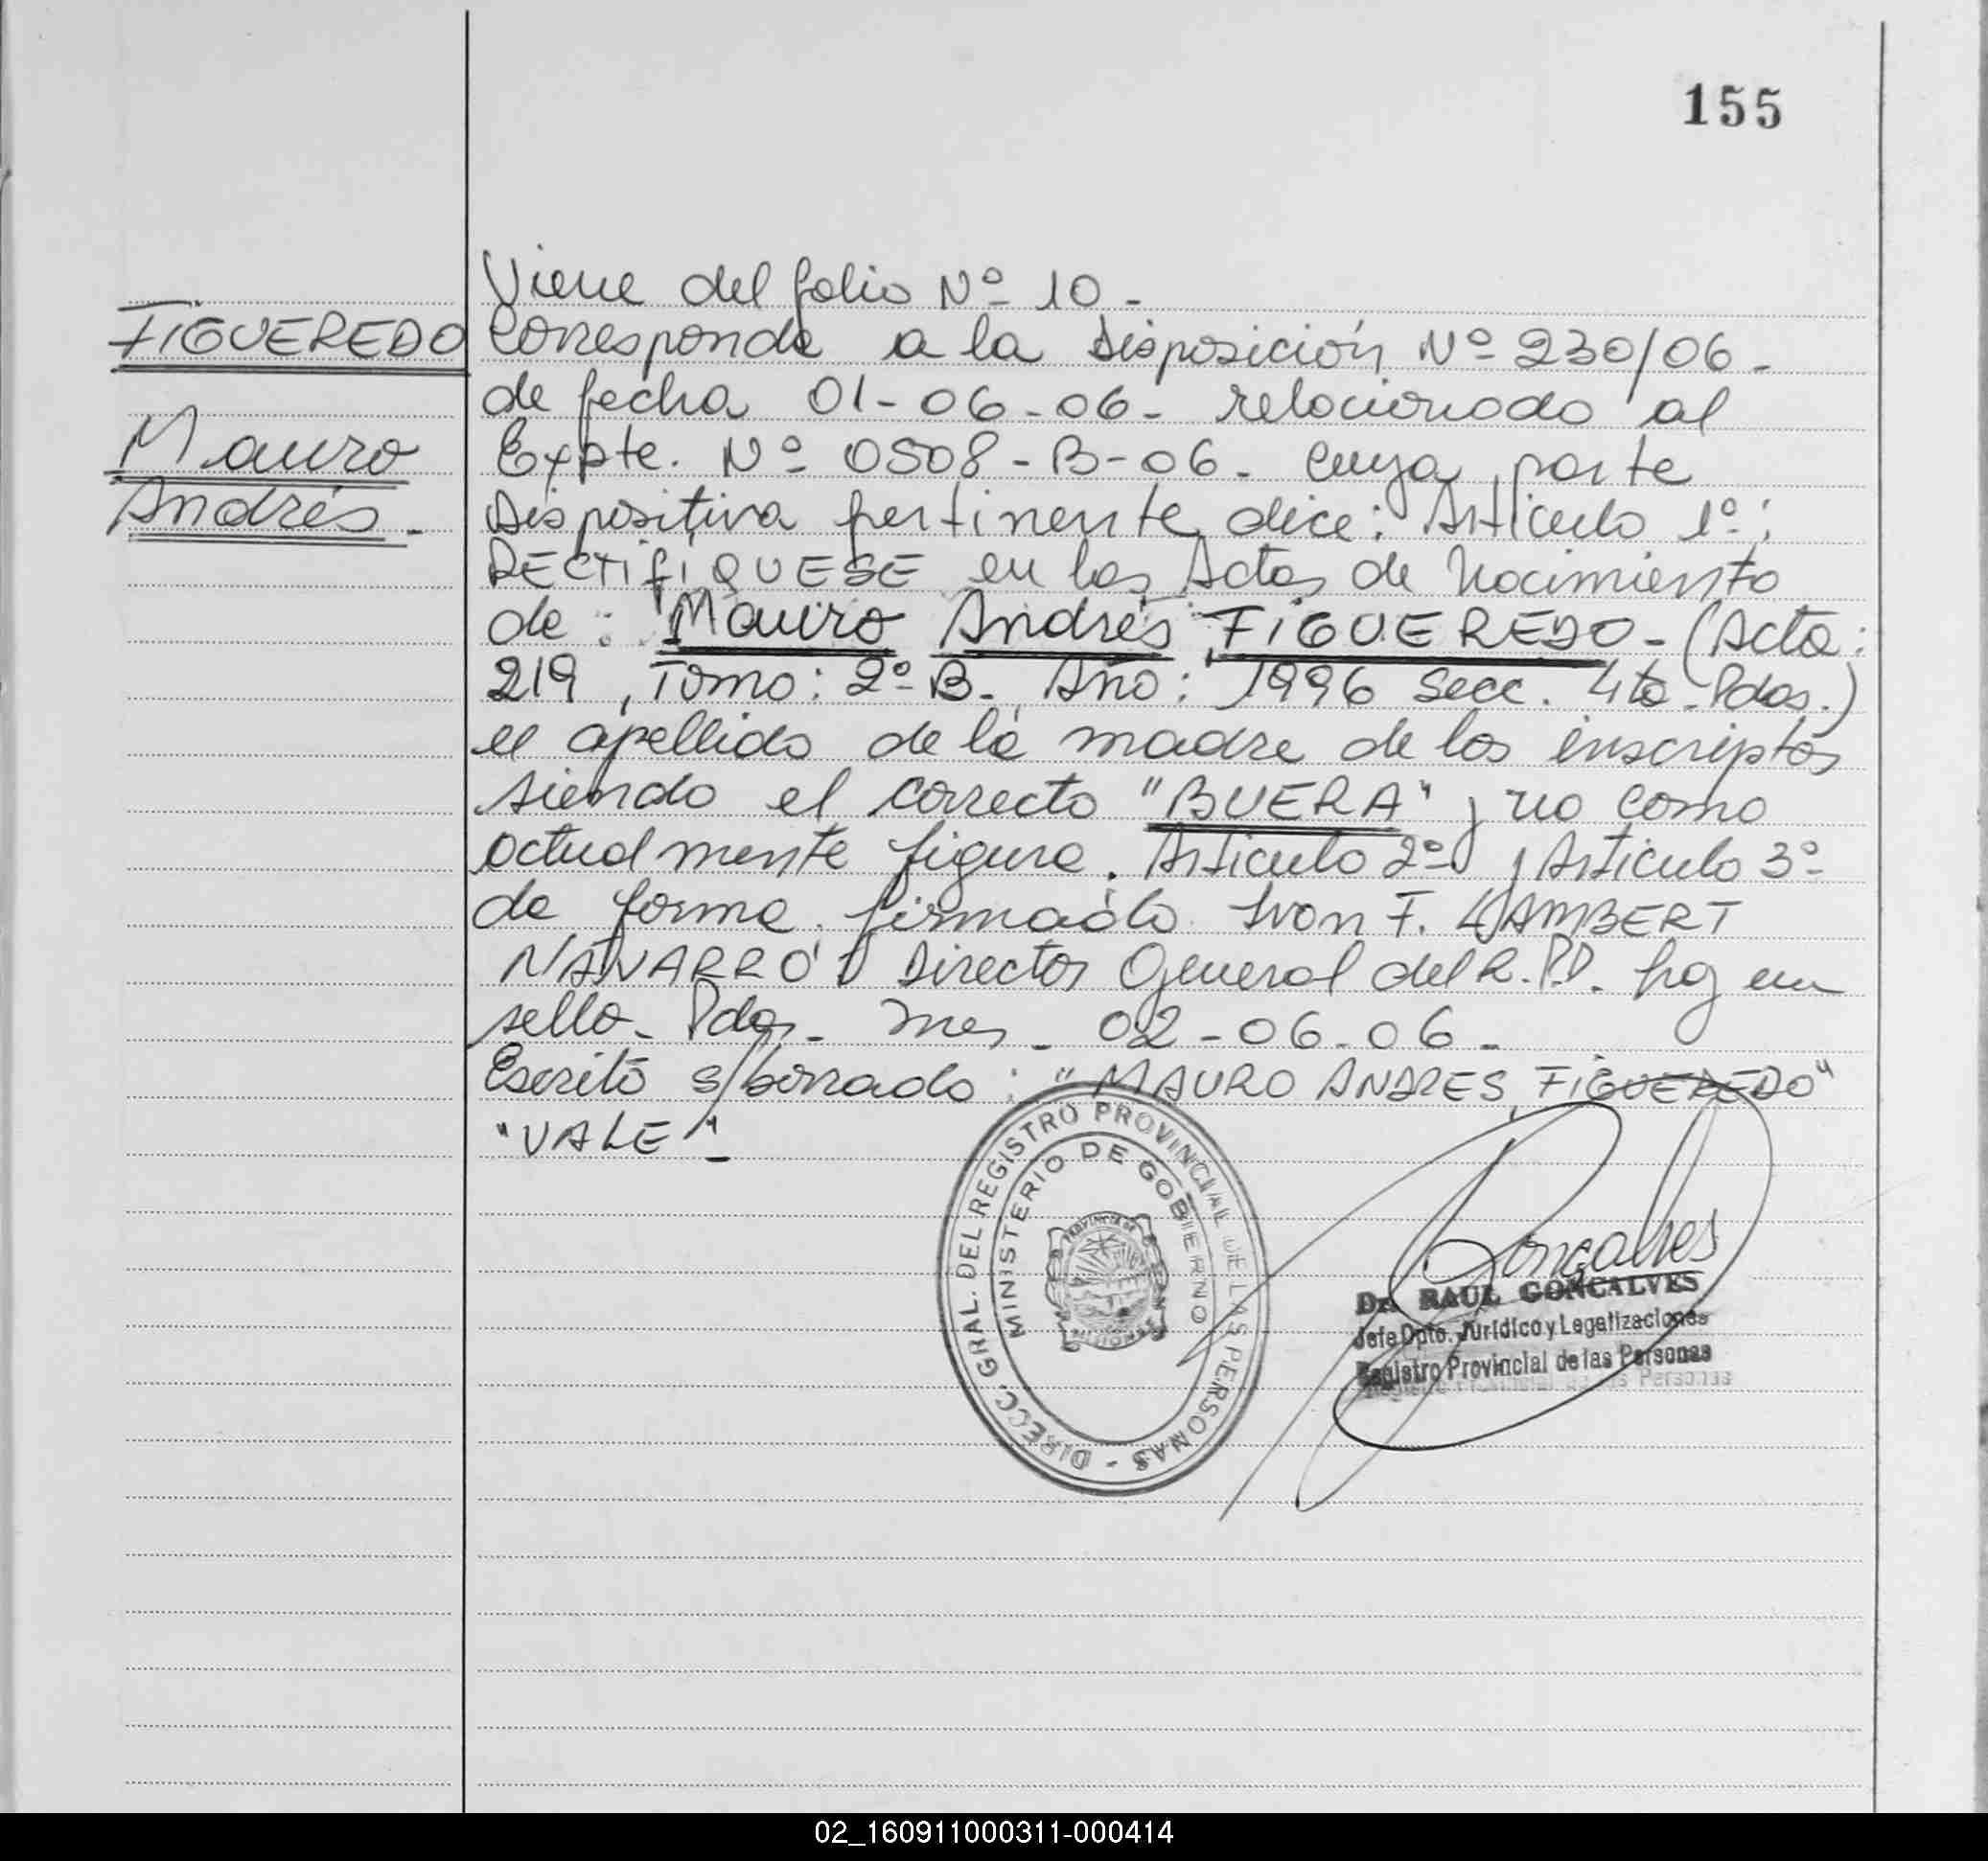 155
Viene del folio Nº 10-
FIGUEREDO
Mauro
Andrés-
Corresponde a la Disposición Nº 230/06-
de fecha 01-06-06- relacionado al
Expte. Nº 0508-B-06- cuya parte
Dispositiva pertinente dice: Artículo 1º:
RECTIFIQUESE en las Actas de Nacimiento
de: Mauro Andrés FIGUEREDO- (Acta:
219, Tomo: 2º B. Año: 1996 Secc. 4ta-Pdas.)
el apellido de la madre de los inscriptos
siendo el correcto "BUERA" y no como
actualmente figura. Artículo 2º y Artículo 3º
de forma. firmado. Ivon F. LAMBERT
NAVARRO Director General del R.P.P. hay un
sello- Pdas- Mnes- 02-06-06-
Escrito s/borrado: "MAURO ANDRES FIGUEREDO"
"VALE"-
DIRECC. GRAL. DEL REGISTRO PROVINCIAL DE LAS PERSONAS -
MINISTERIO DE GOBIERNO
PROVINCIA DE
MISIONES
Goncalves
Dr. RAUL GONCALVES
Jefe Dpto. Jurídico y Legalizaciones
Registro Provincial de las Personas
02_160911000311-000414